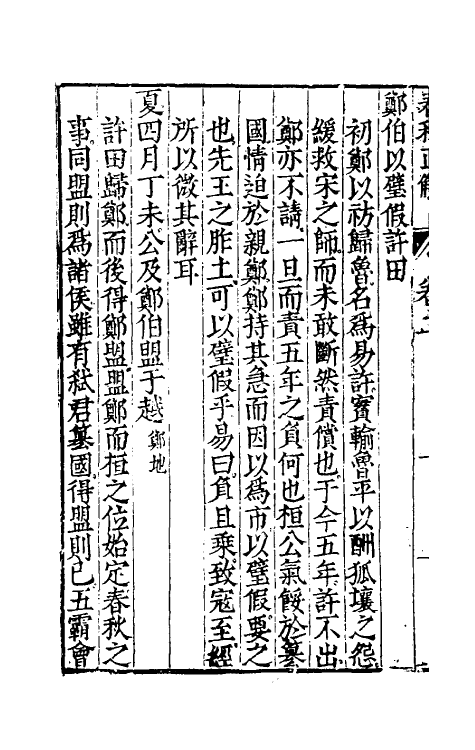 春秋正解 卷之二
鄭伯以璧假許田
初鄭以祊歸魯名爲易許實輸魯平以酬狐壤之怨
緩救宋之師而未敢斷然責償也于今五年許不出
鄭亦不請一旦而責五年之負何也桓公氣餒於篡
國情迫於親鄭鄭持其急而因以爲市以璧假要之
也先王之胙土可以璧假乎易曰負且乘致寇至經
所以微其辭耳
夏四月丁未公及鄭伯盟于越鄭地
許田歸鄭而後得鄭盟盟鄭而桓之位始定春秋之
事同盟則爲諸侯雖有弒君篡國得盟則已五霸會